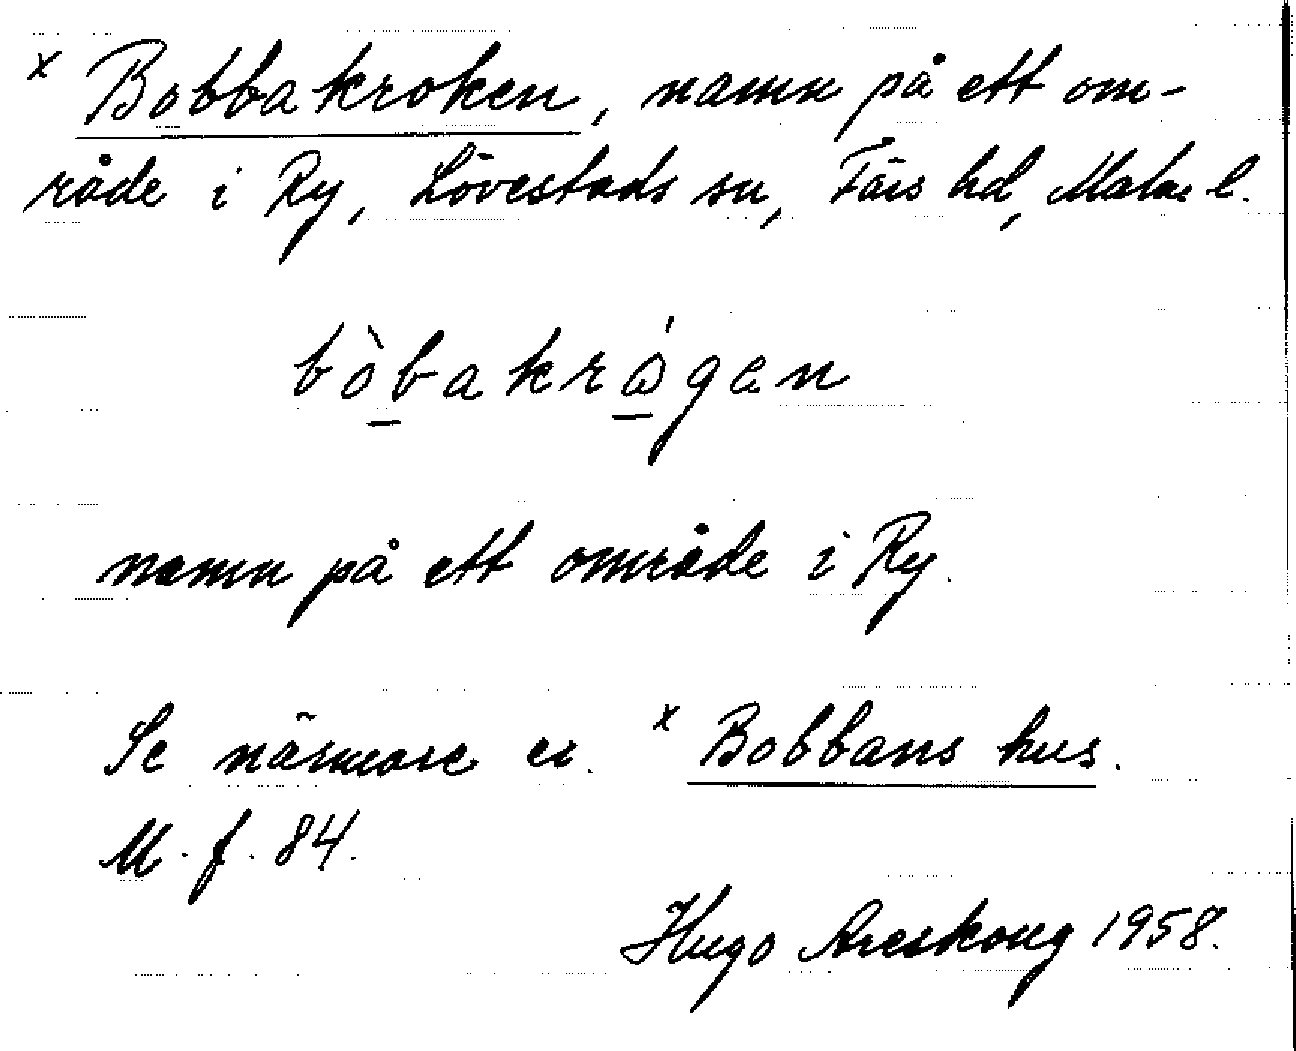 x Bobbakroken, namn på ett om-
råde i Ry, Lövestads sn, Färs hd, Malm. l.
bòbakrågen
namn på ett område i Ry.
Se närmare x Bobbans hus.
M. f. 84.
Hugo Areskoug 1958.